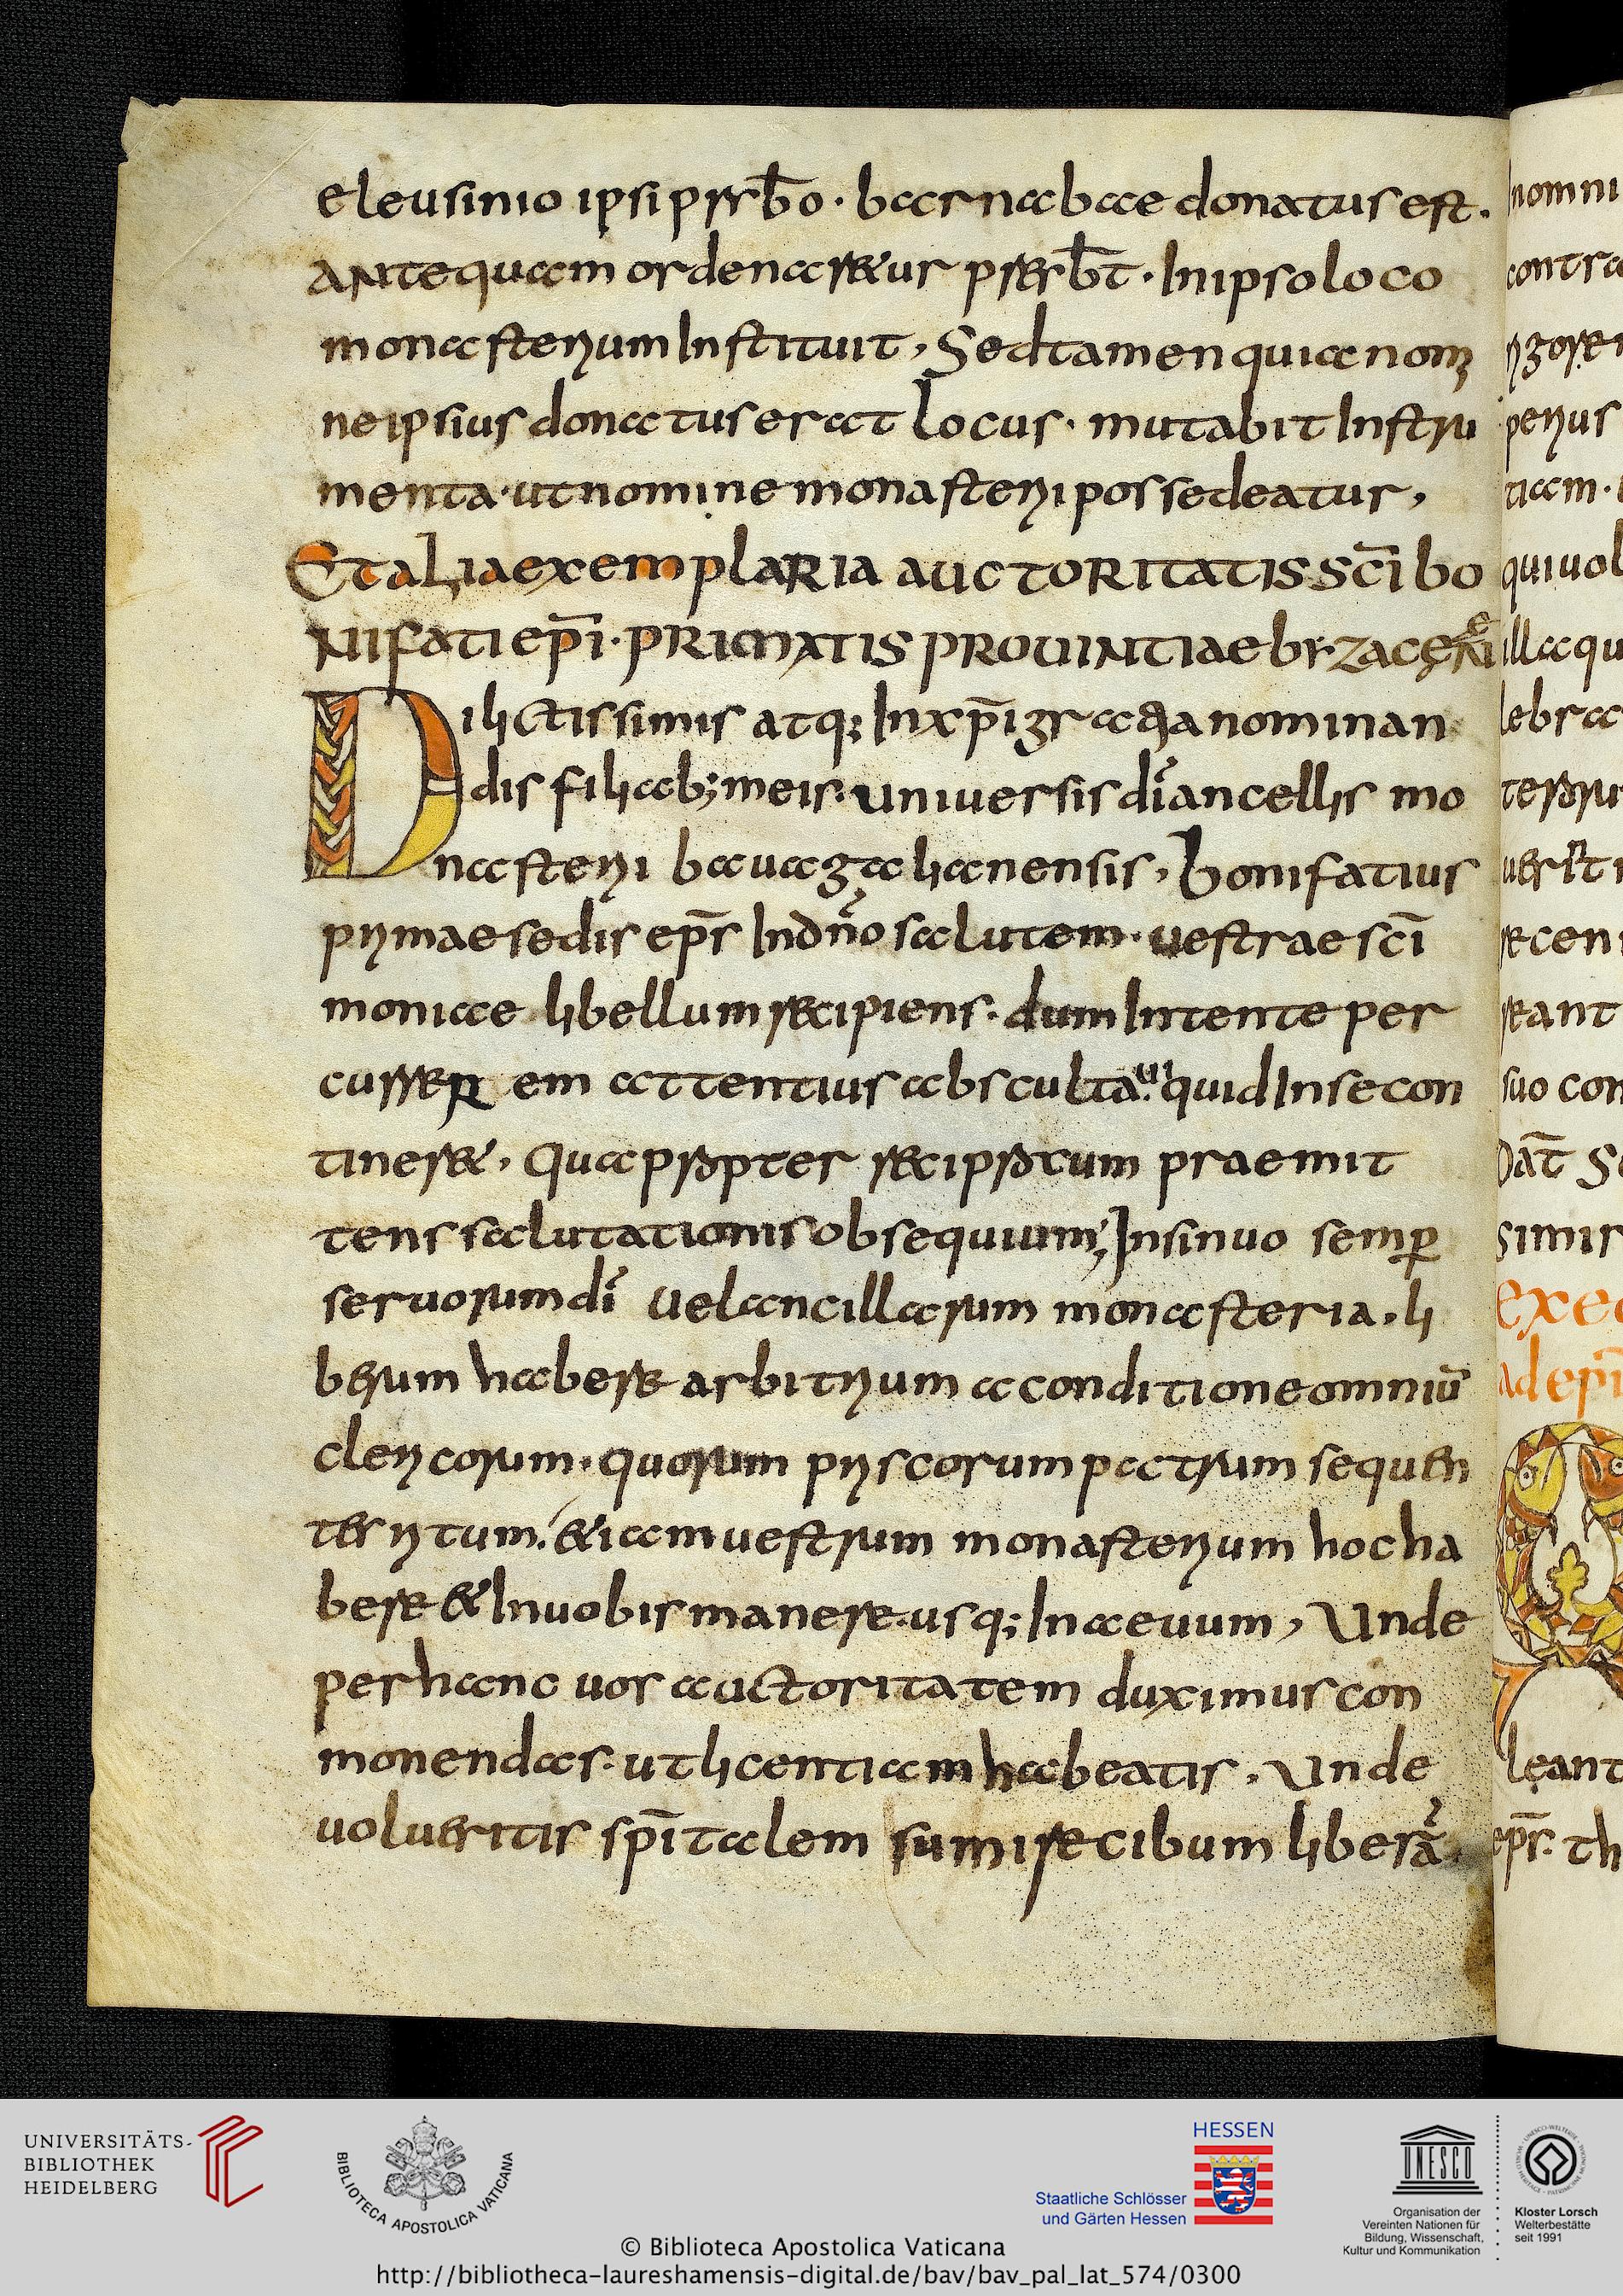 eleusinio ipsi prsrb̄o · barnabae donatus est.
antequam ordenaretur presrb̄t · In ipso loco
monasterium Instituit, Sed tamen quia nomi
ne ipsius donatus erat locus · mutabit Instru
menta · ut nomine monasterii possedeatur,
Et alia exemplaria auctoritatis sc̄i bo
nifati ep̄i · primatis provintiae
Dilictissimis atq; In xp̄i gratia nominan
dis filiab; meis · universis dī ancellis mo
nasterii bavagalianensis, bonifatius
primae sedis ep̄s In dn̄o salutem · vestrae sc̄i
moniae libellum recipiens · dum Intente per
currerem attentius absculta ui quid In se con
tineret, Qua propter reciprotum praemit
tens salutationis obsequium, Insinuo semp̱
servorum dī vel ancillarum monasteria · li
berum habere arbitrium a conditione omniū
clericorum · quorum priscorum patrum sequen
tes ritum. etiam vestrum monasterium hoc ha
bere et In vobis manere · usq; In aevum, Unde
per hanc vos auctoritatem duximus con
monendas · ut licentiam habeatis, Unde
volueritis sp̄italem sumire cibum libera
nomni
contra
penus
tiam ·
qui vol
illa qu
recen
reant
suo con
Dat̄
simis
exe
ad ep̄i
leant
ep̄s · th
UNIVERSITÄTS-
BIBLIOTHEK
HEIDELBERG
BIBLIOTECA APOSTOLICA VATICANA
HESSEN
Staatliche Schlösser
und Gärten Hessen
UNESCO
Organisation der
Vereinten Nationen für
Bildung, Wissenschaft,
Kultur und Kommunikation
WORLD HERITAGE · PATRIMOINE MONDIAL
Kloster Lorsch
Welterbestätte
seit 1991
© Biblioteca Apostolica Vaticana
http://bibliotheca-laureshamensis-digital.de/bav/bav_pal_lat_574/0300